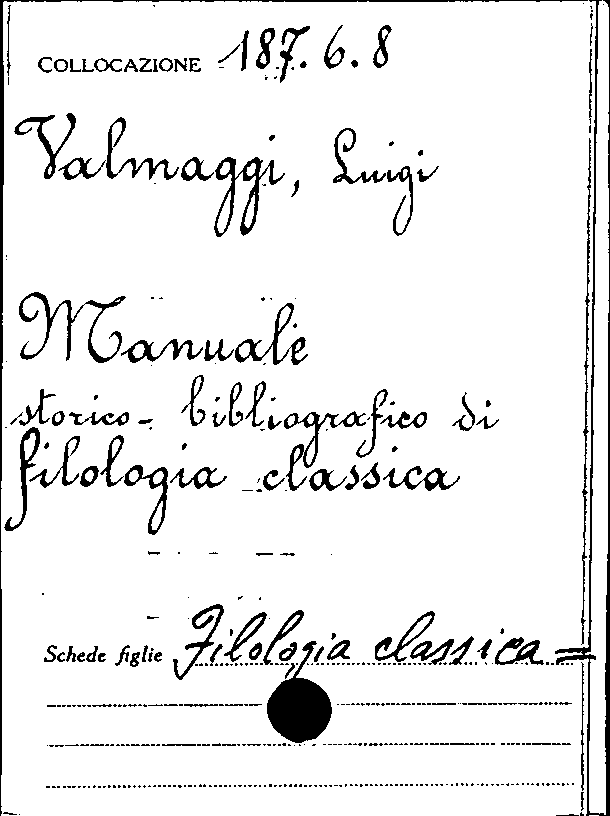 COLLOCAZIONE 187.6.8
Valmaggi, Luigi
Manuale
storico-bibliografico di
filologia classica
Schede figlie Filologia classica =